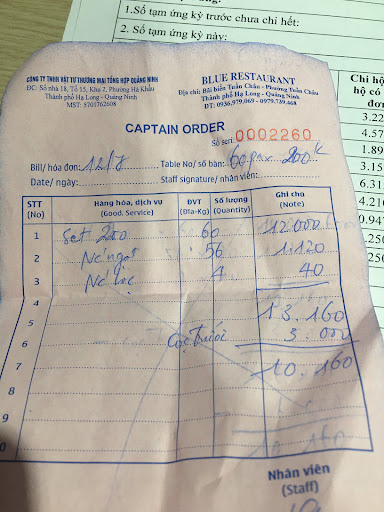 1.Số tạm ứng kỳ trước chưa chi hết:
2. Số tạm ứng kỳ này:
CÔNG TY TNHH VẬT TƯ THƯƠNG MẠI TỔNG HỢP QUẢNG NINH
ĐC: Số nhà 18, Tổ 15, Khu 2, Phường Hà Khẩu
Thành phố Hạ Long - Quảng Ninh
MST: 5701762608
BLUE RESTAURANT
Địa chỉ: Bãi biển Tuần Châu - Phường Tuần Châu
Thành phố Hạ Long - Quảng Ninh
ĐT: 0936.979.069 - 0979.739.468
CAPTAIN ORDER
Số seri: 0002260
Bill/ hóa đơn: 12/7 Table No/ số bàn: 60 pax 200k
Date/ ngày: Staff signature/ nhân viên:
STT (No) Hàng hóa, dịch vụ (Good. Service) ĐVT (Đĩa-Kg) Số lượng (Quantity) Ghi chú (Note)
1 Set 200 60 12.000
2 Nc ngọt 56 1.120
3 Nc lọc 4 40
4 13.160
5 Cọc trước 3.000
6
7 10.160
8
9
0
Nhân viên
(Staff)
Chi hộ
hộ có
đơn
3.22
4.57
1.89
3.15
6.31
4.210
.250
.250